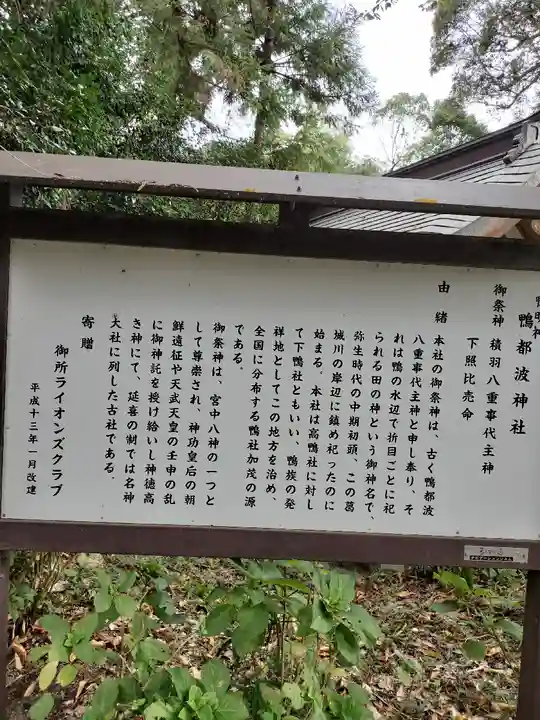 鴨都波神社
御祭神　積羽八重事代主神
下照比売命
由緒　本社の御祭神は、古く鴨都波
八重事代主神と申し奉り、そ
れは鴨の水辺で折目ごとに祀
られる田の神という御神名で、
弥生時代の中期初頭、この葛
城川の岸辺に鎮め祀ったのに
始まる。本社は高鴨社に対し
て下鴨社ともいい、鴨族の発
祥地としてこの地方を治め、
全国に分布する鴨社加茂の源
である。
御祭神は、宮中八神の一つと
して尊崇され、神功皇后の朝
鮮遠征や天武天皇の壬申の乱
に御神託を授け給いし神徳高
き神にて、延喜の制では名神
大社に列した古社である。
寄贈
御所ライオンズクラブ
平成十三年一月改建